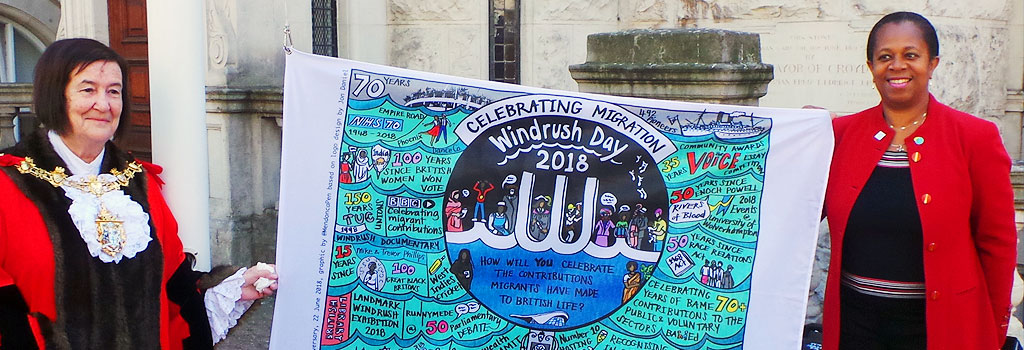 70 YEARS
EMPIRE ROAD
NHS 70
1948 - 2018
Phoenix
Dance Co.
India
100 YEARS
SINCE BRITISH
WOMEN WON
VOTE
150
YEARS
TUC
1998
BBC
Celebrating
migrant
contributions
WINDRUSH DOCUMENTARY
Mike & Trevor Phillips
15
YEARS
SINCE
100
GREAT BLACK
BRITONS
West
Indies
Cricket
LANDMARK
WINDRUSH
EXHIBITION
2018
RUNNYMEDE
@ 50
Parliamentary
DEBATE
CELEBRATING MIGRATION
Windrush Day
2018
HOW WILL YOU CELEBRATE
THE CONTRIBUTIONS
MIGRANTS HAVE MADE
TO BRITISH LIFE?
Number 10
HOSTING
492
COMMUNITY AWARDS
35
YEARS
VOICE
ESSAY
50 YEARS SINCE
ENOCH POWELL
RIVERS
of BLOOD
2018
Events
@
University of
Wolverhampton
50 YEARS SINCE
RACE RELATIONS
Act
CELEBRATING 70+
YEARS OF BAME
CONTRIBUTIONS TO THE
PUBLIC & VOLUNTARY
SECTORS
RECOGNISING
22 June 2018, graphic by @MendoncaPen based on logo design by Jon Daniel
MAYOR OF CROY